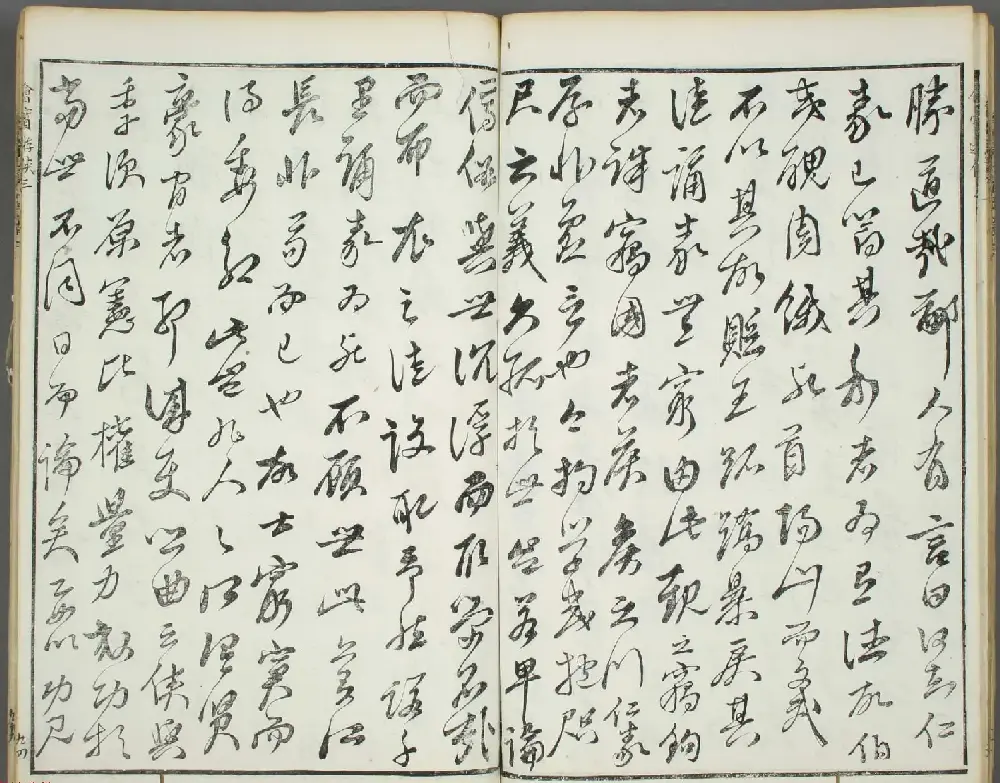 勝道哉鄙人有言曰何知仁
義已饗其利者為有德故伯
夷醜周餓死首陽山而文武
不以其故貶王跖蹻暴戾其
徒誦義無窮由此觀之竊鉤
者誅竊國者侯侯之門仁義
存非虛言也今拘學或抱咫
尺之義久孤於世豈若卑論
儕俗與世沉浮而取榮名哉
而布衣之徒設取予然諾千
里誦義為死不顧世此亦所
長非苟而已也故士窮窘而
得委命此豈非人之所謂賢
豪間者耶誠使鄉曲之俠與
季次原憲比權量力效功於
當世不同日而論矣要以功見